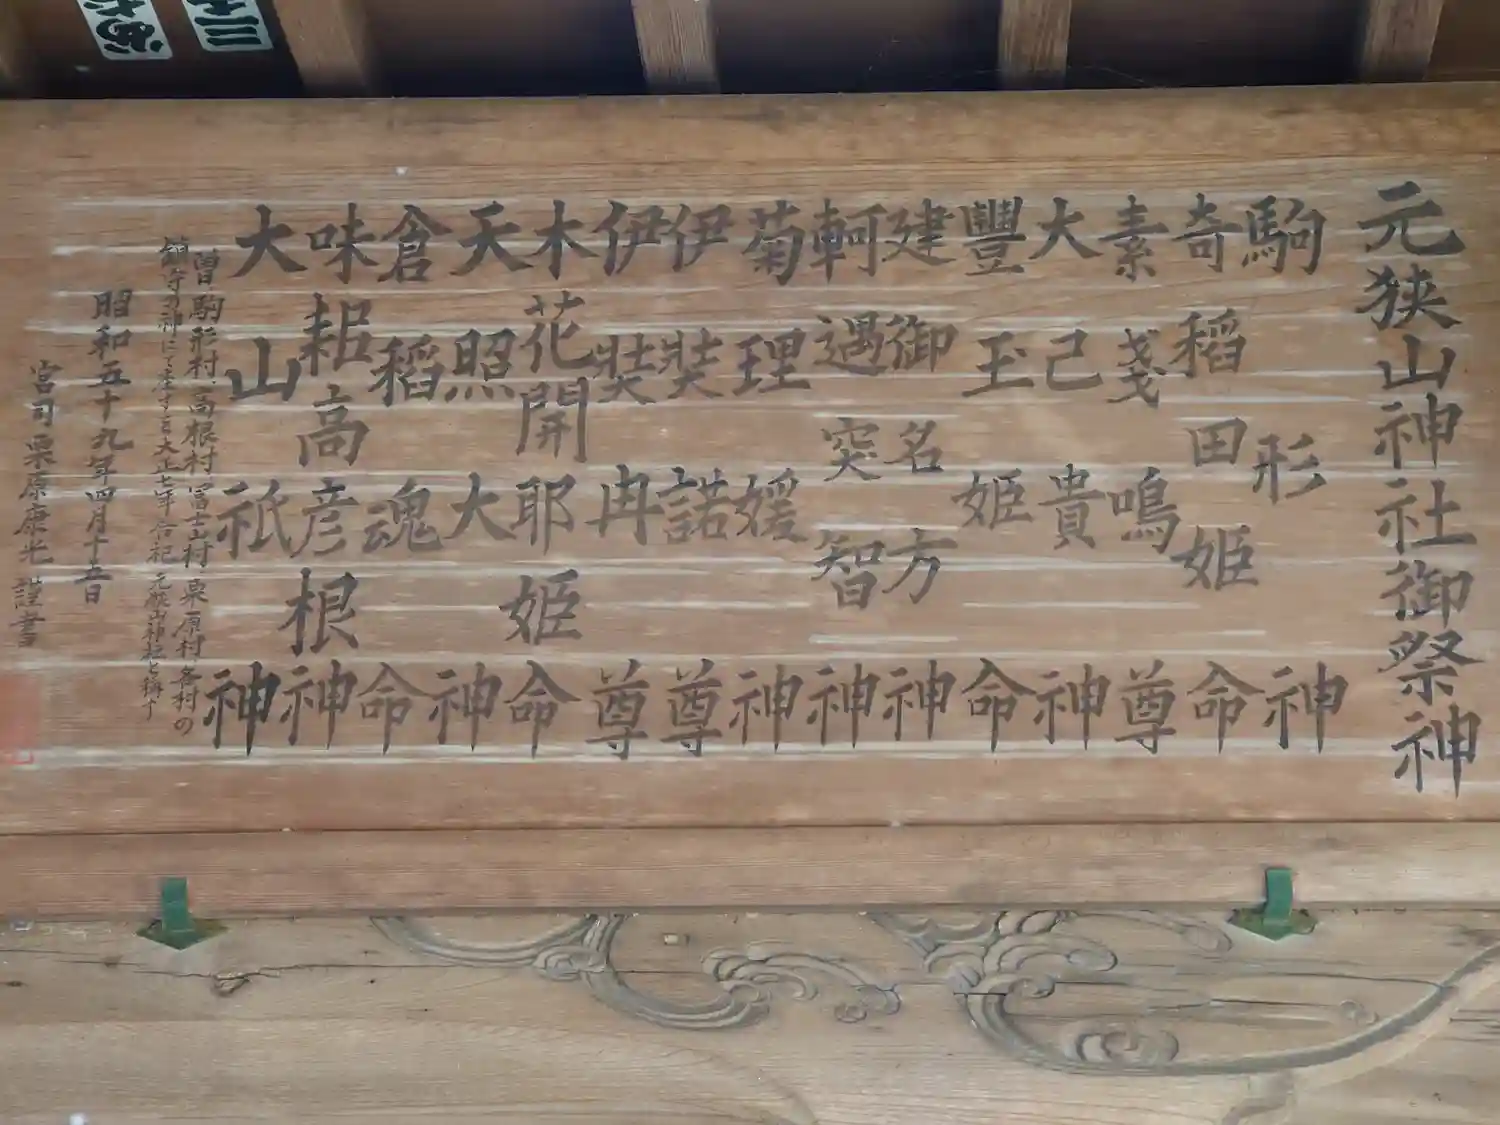 元狭山神社御祭神
駒形神
奇稲田姫命
素戔嗚尊
大己貴神
豐玉姫命
建御名方神
軻遇突智神
菊理媛神
伊弉諾尊
伊弉冉尊
木花開耶姫命
天照大神
倉稲魂命
味耜高彦根神
大山祇神
曽駒形村、高根村、冨士山村、栗原村各村の
鎮守の神にて座すを大正七年合祀元狭山神社と称す
昭和五十九年四月十五日
宮司栗原康光 謹書